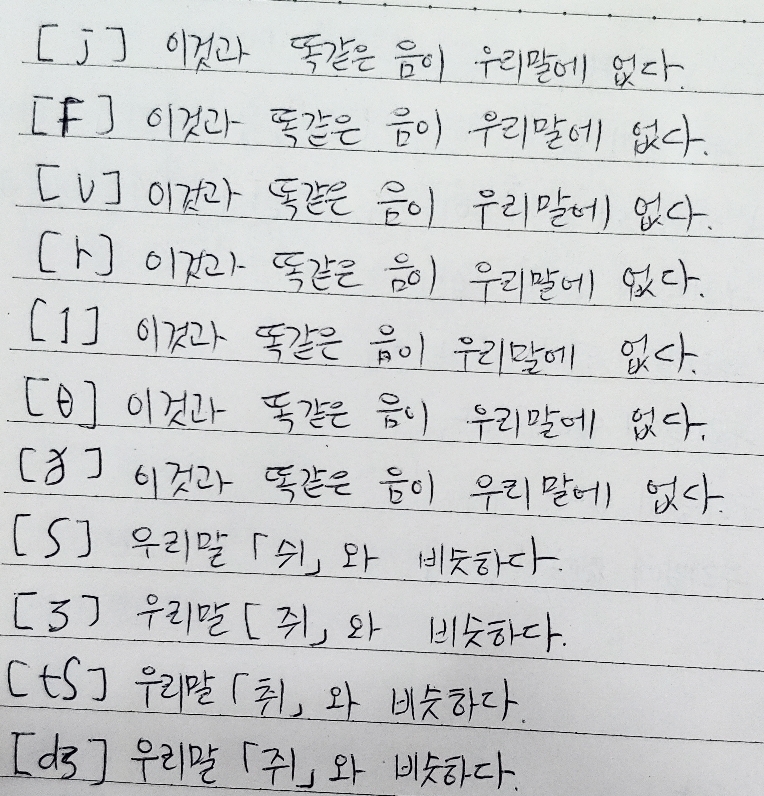 [j] 이것과 똑같은 음이 우리말에 없다.
[F] 이것과 똑같은 음이 우리말에 없다.
[v] 이것과 똑같은 음이 우리말에 없다.
[r] 이것과 똑같은 음이 우리말에 없다.
[l] 이것과 똑같은 음이 우리말에 없다.
[θ] 이것과 똑같은 음이 우리말에 없다.
[ð] 이것과 똑같은 음이 우리말에 없다.
[ʃ] 우리말 「쉬」 와 비슷하다
[ʒ] 우리말 [쥐」 와 비슷하다.
[tʃ] 우리말 「취」 와 비슷하다.
[dʒ] 우리말 「쥐」 와 비슷하다.